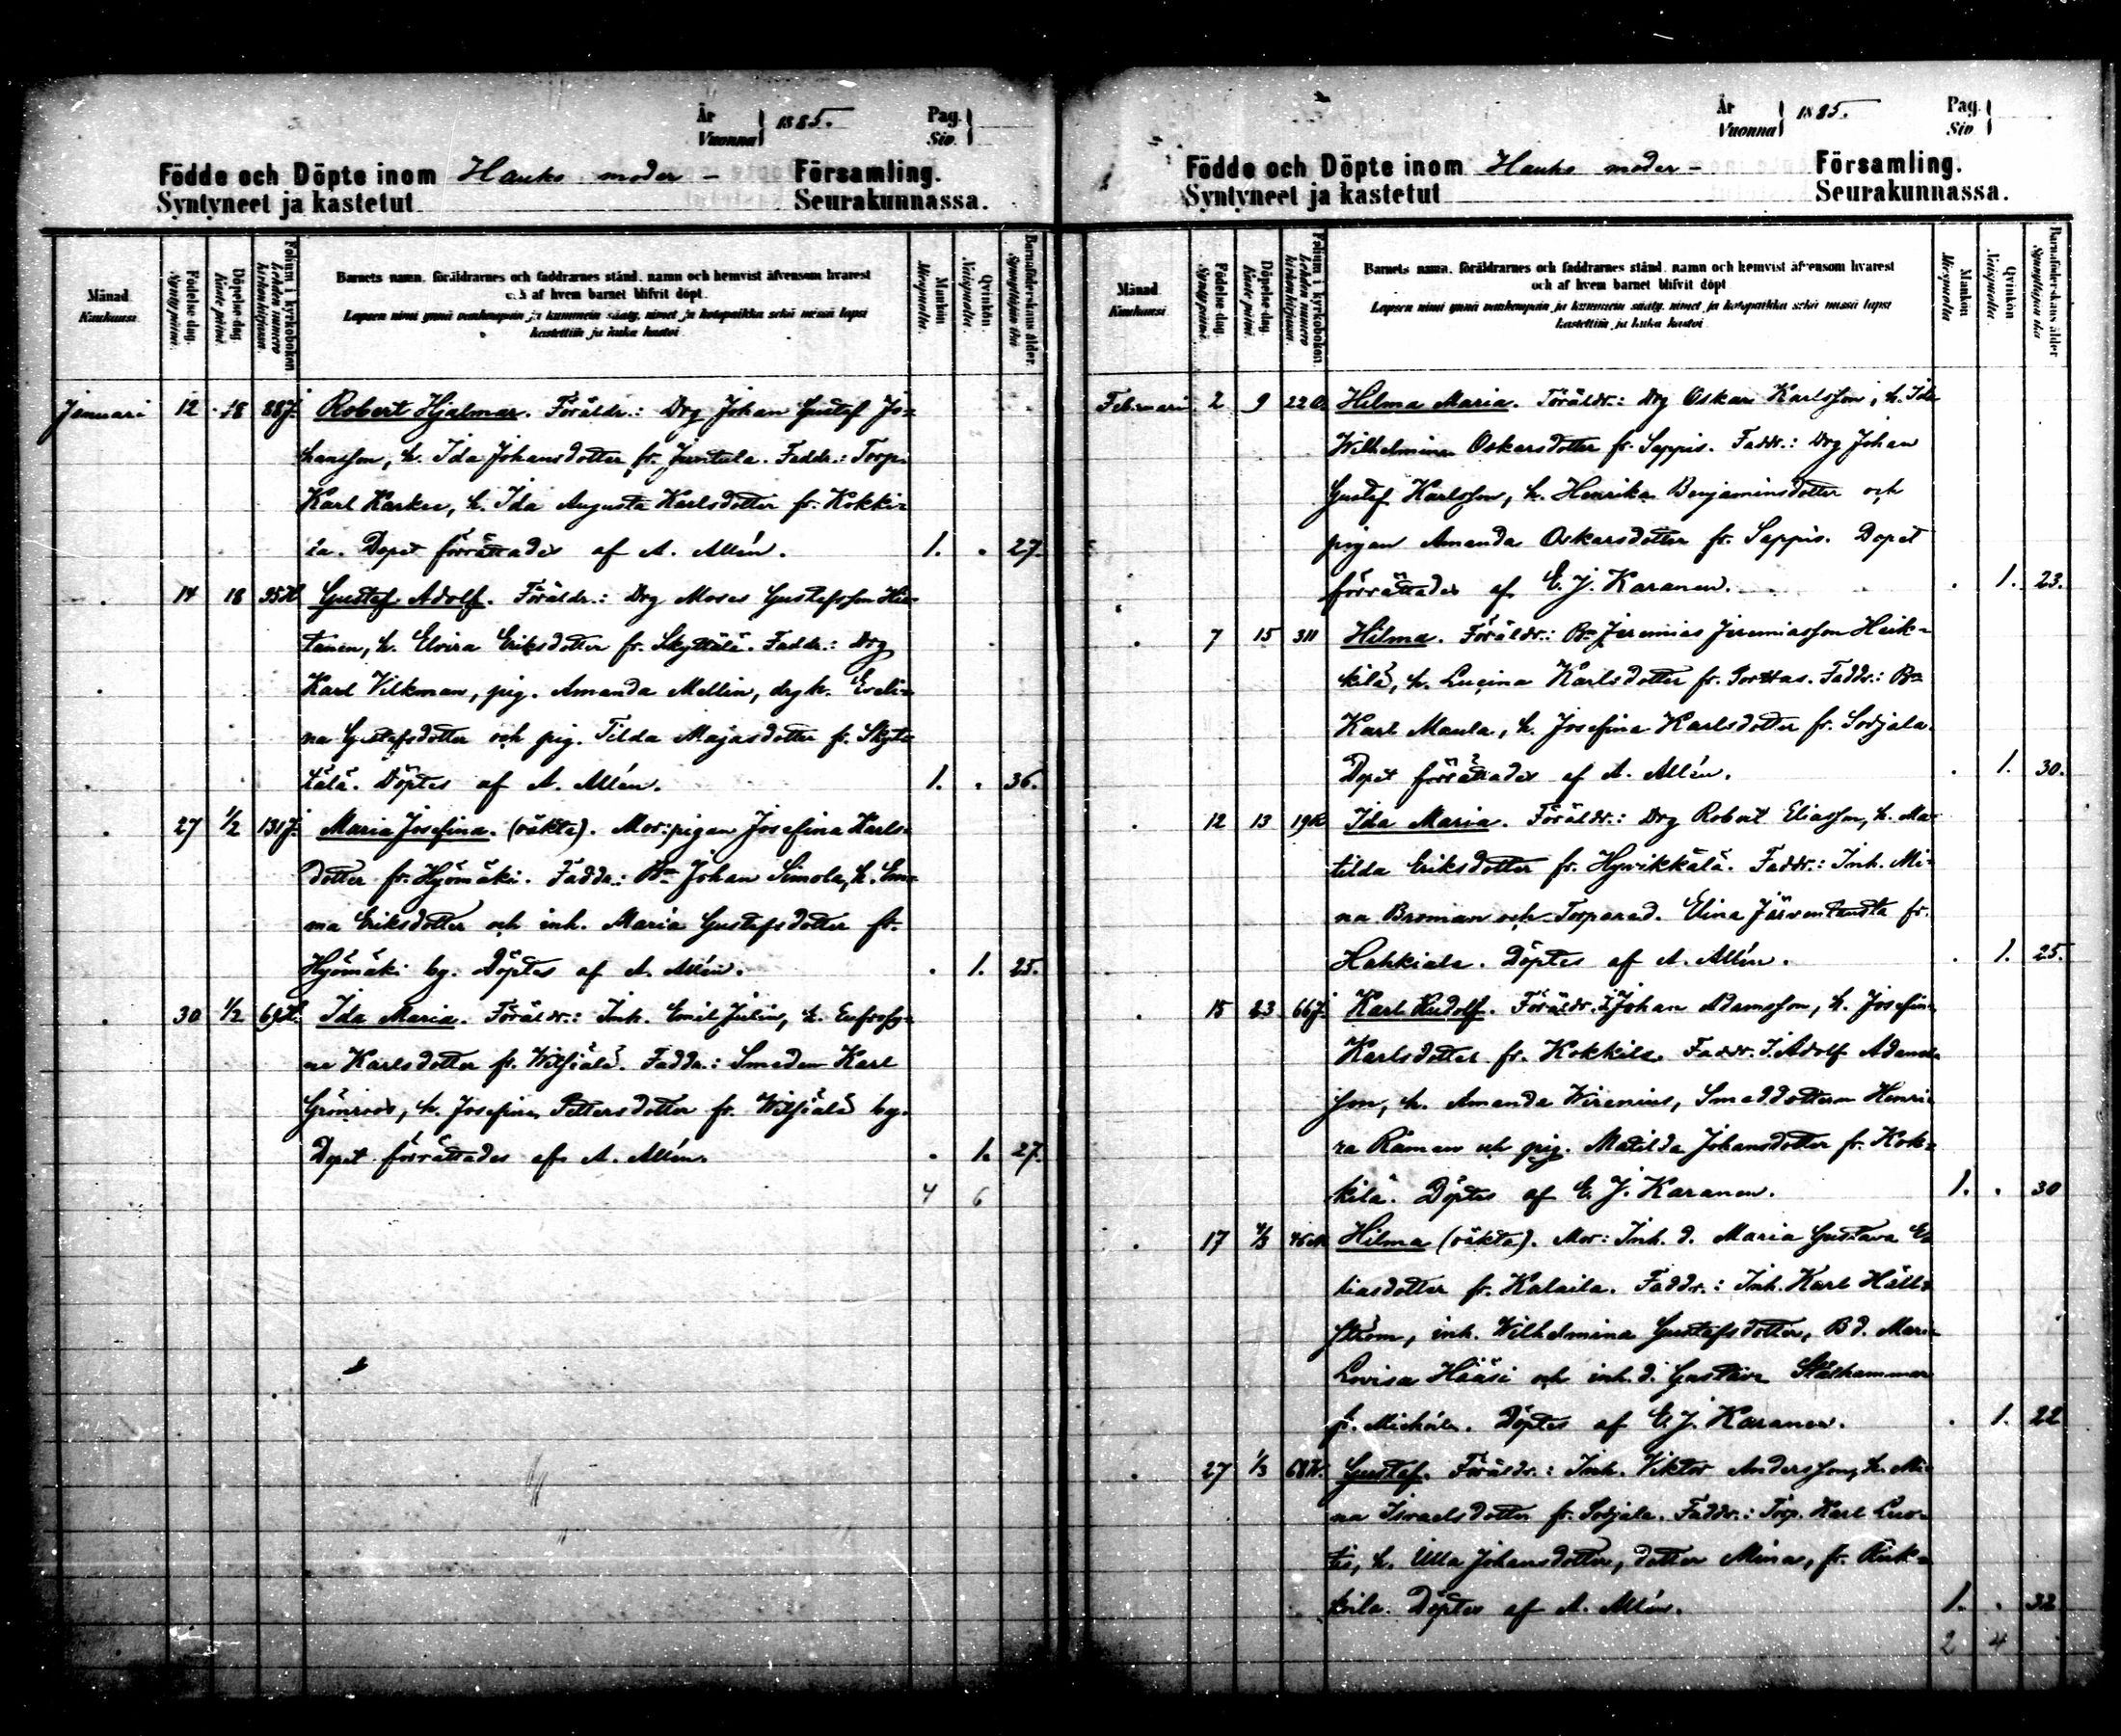 År
Vuonna 1885.
Pag.
Siv.
Födde och Döpte inom Hauho moder- Församling.
Syntyneet ja kastetut Seurakunnassa.
Månad. Kuukausi.
Födelse-dag. Syntypäivä.
Döpelse-dag. Kaste päivä.
Folium i kyrkoboken. Lehden numero kirkonkirjassa.
Barnets namn, föräldrarnes och faddrarnes stånd, namn och hemvist äfvensom hvarest
och af hvem barnet blifvit döpt.
Lapsen nimi ynnä vanhempain ja kummein sääty, nimet ja kotopaikka sekä missä lapsi
kastettiin ja kuka kastoi.
Mankön. Miespuolta.
Qvinkön. Naispuolta.
Barnaföderskans ålder. Synnyttäjän ikä
Januari 12 18 88 J. Robert Hjalmar. Föräldr.: Drg Johan Gustaf Jo-
hansson, h. Ida Johansdotter fr. Juntula. Faddr.: Torp.
Karl Karkee, h. Ida Augusta Karlsdotter fr. Kokki-
la. Dopet förrättades af A. Allén. 1. . 27.
14 18 95 Gustaf Adolf. Föräldr.: Drg Moses Gustafsson Hie-
tanen, h. Elvira Eriksdotter fr. Skyttälä. Faddr.: Drg
Karl Vilkman, pig. Amanda Mellin, drg h. Eveli-
na Gustafsdotter och pig. Tilda Majasdotter fr. Skyt-
tälä. Döptes af A. Allén. 1. . 36.
27 1/2 131 J. Maria Josefina. (oäkta). Mor: pigan Josefina Karls-
dotter fr. Hyömäki. Faddr.: Bn Johan Simola, h. Em-
ma Eriksdotter och inh. Maria Gustafsdotter fr.
Hyömäki by. Döptes af A. Allén. . 1. 25.
30 1/2 69 Ida Maria. Föräldr.: Inh. Emil Julin, h. Eufrosy-
ne Karlsdotter fr. Witsiälä. Faddr.: Smeden Karl
Grönroos, h. Josefina Pettersdotter fr. Witsiälä by.
Dopet förrättades af A. Allén. . 1. 27.
4 6
År
Vuonna 1885.
Pag.
Siv
Födde och Döpte inom Hauho moder- Församling.
Syntyneet ja kastetut Seurakunnassa.
Månad. Kuukausi.
Födelse-dag. Syntypäivä.
Döpelse-dag. Kaste päivä.
Folium i kyrkoboken. Lehden numero kirkonkirjassa.
Barnets namn, föräldrarnes och faddrarnes stånd, namn och hemvist äfvensom hvarest
och af hvem barnet blifvit döpt
Lapsen nimi ynnä vanhempain ja kummein sääty, nimet ja kotopaikka sekä missä lapsi
kastettiin ja kuka kastoi.
Mankön Miespuolta
Qvinkön Naispuolta.
Barnaföderskans ålder Synnyttäjän ikä
Februari 2 9 22 O. Hilma Maria. Föräldr.: Drg Oskar Karlsson, h. Ida
Wilhelmina Oskarsdotter fr. Sappis. Faddr.: Drg Johan
Gustaf Karlsson, h. Henrika Benjaminsdotter och
pigan Amanda Oskarsdotter fr. Sappis. Dopet
förrättades af E. J. Karanen. . 1. 23.
7 15 311 Hilma. Föräldr.: Bn Jeremias Jeremiasson Heik-
kilä, h. Lucina Karlsdotter fr. Porttas. Faddr.: Bn
Karl Maula, h. Josefina Karlsdotter fr. Sodjala.
Dopet förrättades af A. Allén. . 1. 30.
12 13 19 Ida Maria. Föräldr.: Drg Robert Eliasson, h. Ma-
tilda Eriksdotter fr. Hyvikkälä. Faddr.: Inh. Mi-
na Broman och Torpared. Elina Järventausta fr.
Hahkiala. Döptes af A. Allén. . 1. 25.
15 23 66 J. Karl Rudolf. Föräldr. I. Johan Adamsson, h. Josefina
Karlsdotter fr. Kokkila. Faddr. I. Adolf Adams-
son, h. Amanda Wirenius, Smeddottern Henri-
ka Råman och pig. Matilda Johansdotter fr. Kok-
kila. Döptes af E. J. Karanen. 1. . 30
17 4/3 46 Hilma (oäkta). Mor: Inh. d. Maria Gustava E-
liasdotter fr. Kalaila. Faddr.: Inh. Karl Häll-
ström, inh. Wilhelmina Gustafsdotter, Bd. Maria
Lovisa Hääsi och inh. d. Gustava Stålhammar
fr. Miehoila. Döptes af E. J. Karanen. . 1. 22
27 1/3 68 Gustaf. Föräldr.: Inh. Viktor Andersson, h. Mi-
na Israelsdotter fr. Sodjala. Faddr.: Torp. Karl
h. Ulla Johansdotter, dotter Mina, fr.
Döptes af A. Allén. 1. . 32
2 4